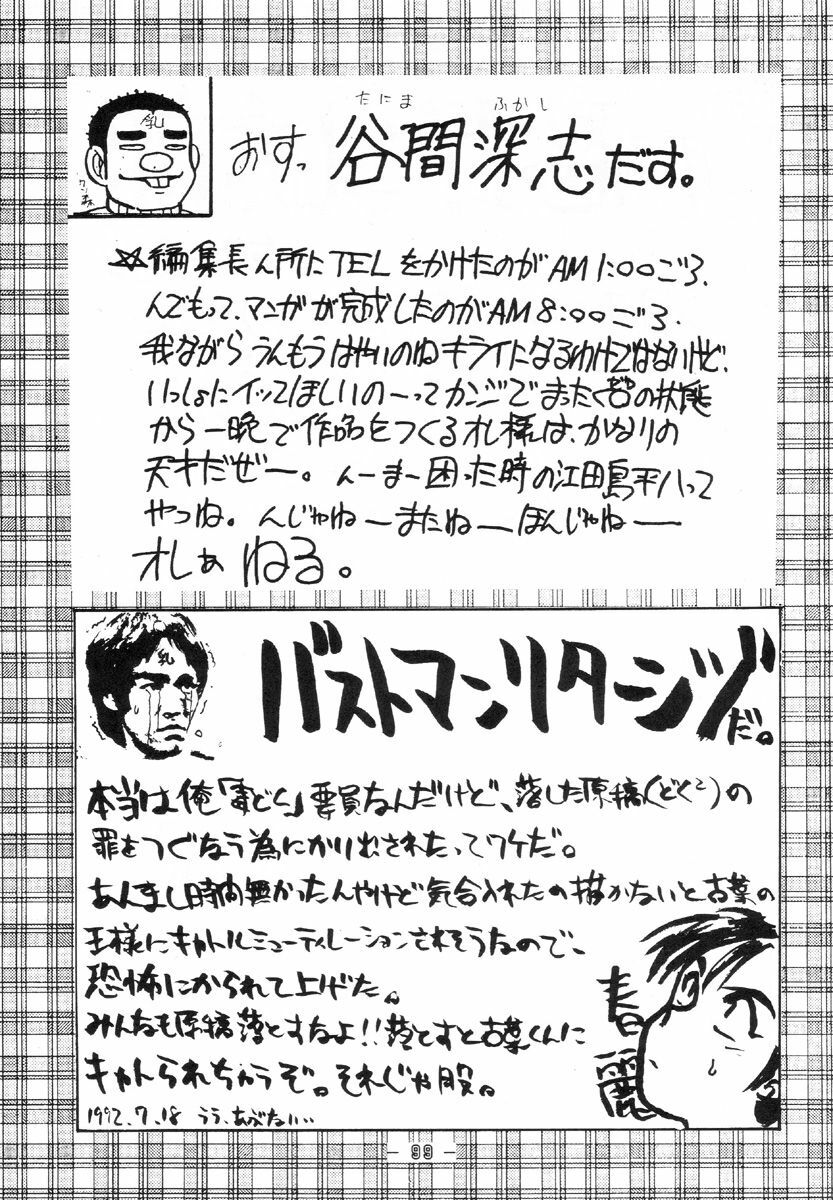 乳
たにま ふかし
おすっ 谷間深志だす。
☆編集長ん所にTELをかけたのがAM1:00ごろ、
んでもって、マンガが完成したのがAM8:00ごろ、
我ながら うんもうはやいのねキライになるわけではないけど、
いっしょにイッてほしいのーってカンジでまったく0の状態
から一晩で作品をつくるオレ様は、かなりの
天才だぜー。んーまー困った時の江田島平八って
やつね。んじゃねーまたねーほんじゃねー
オレぁ ねる。
乳
バストマンリターンヅだ。
本当は俺「毒どく」要員なんだけど、落した原稿(どく2)の
罪をつぐなう為にかり出されたってワケだ。
あんまし時間無かったんやけど気合入れたの描かないと古葉の
王様にキャトルミューティレーションされそうなので、
恐怖にかられて上げた。
みんなも原稿落とすなよ!!落とすと古葉くんに
キャトられちゃうぞ。それじゃ股。
1992.7.18 うう、あぶない…
春麗
- 99 -